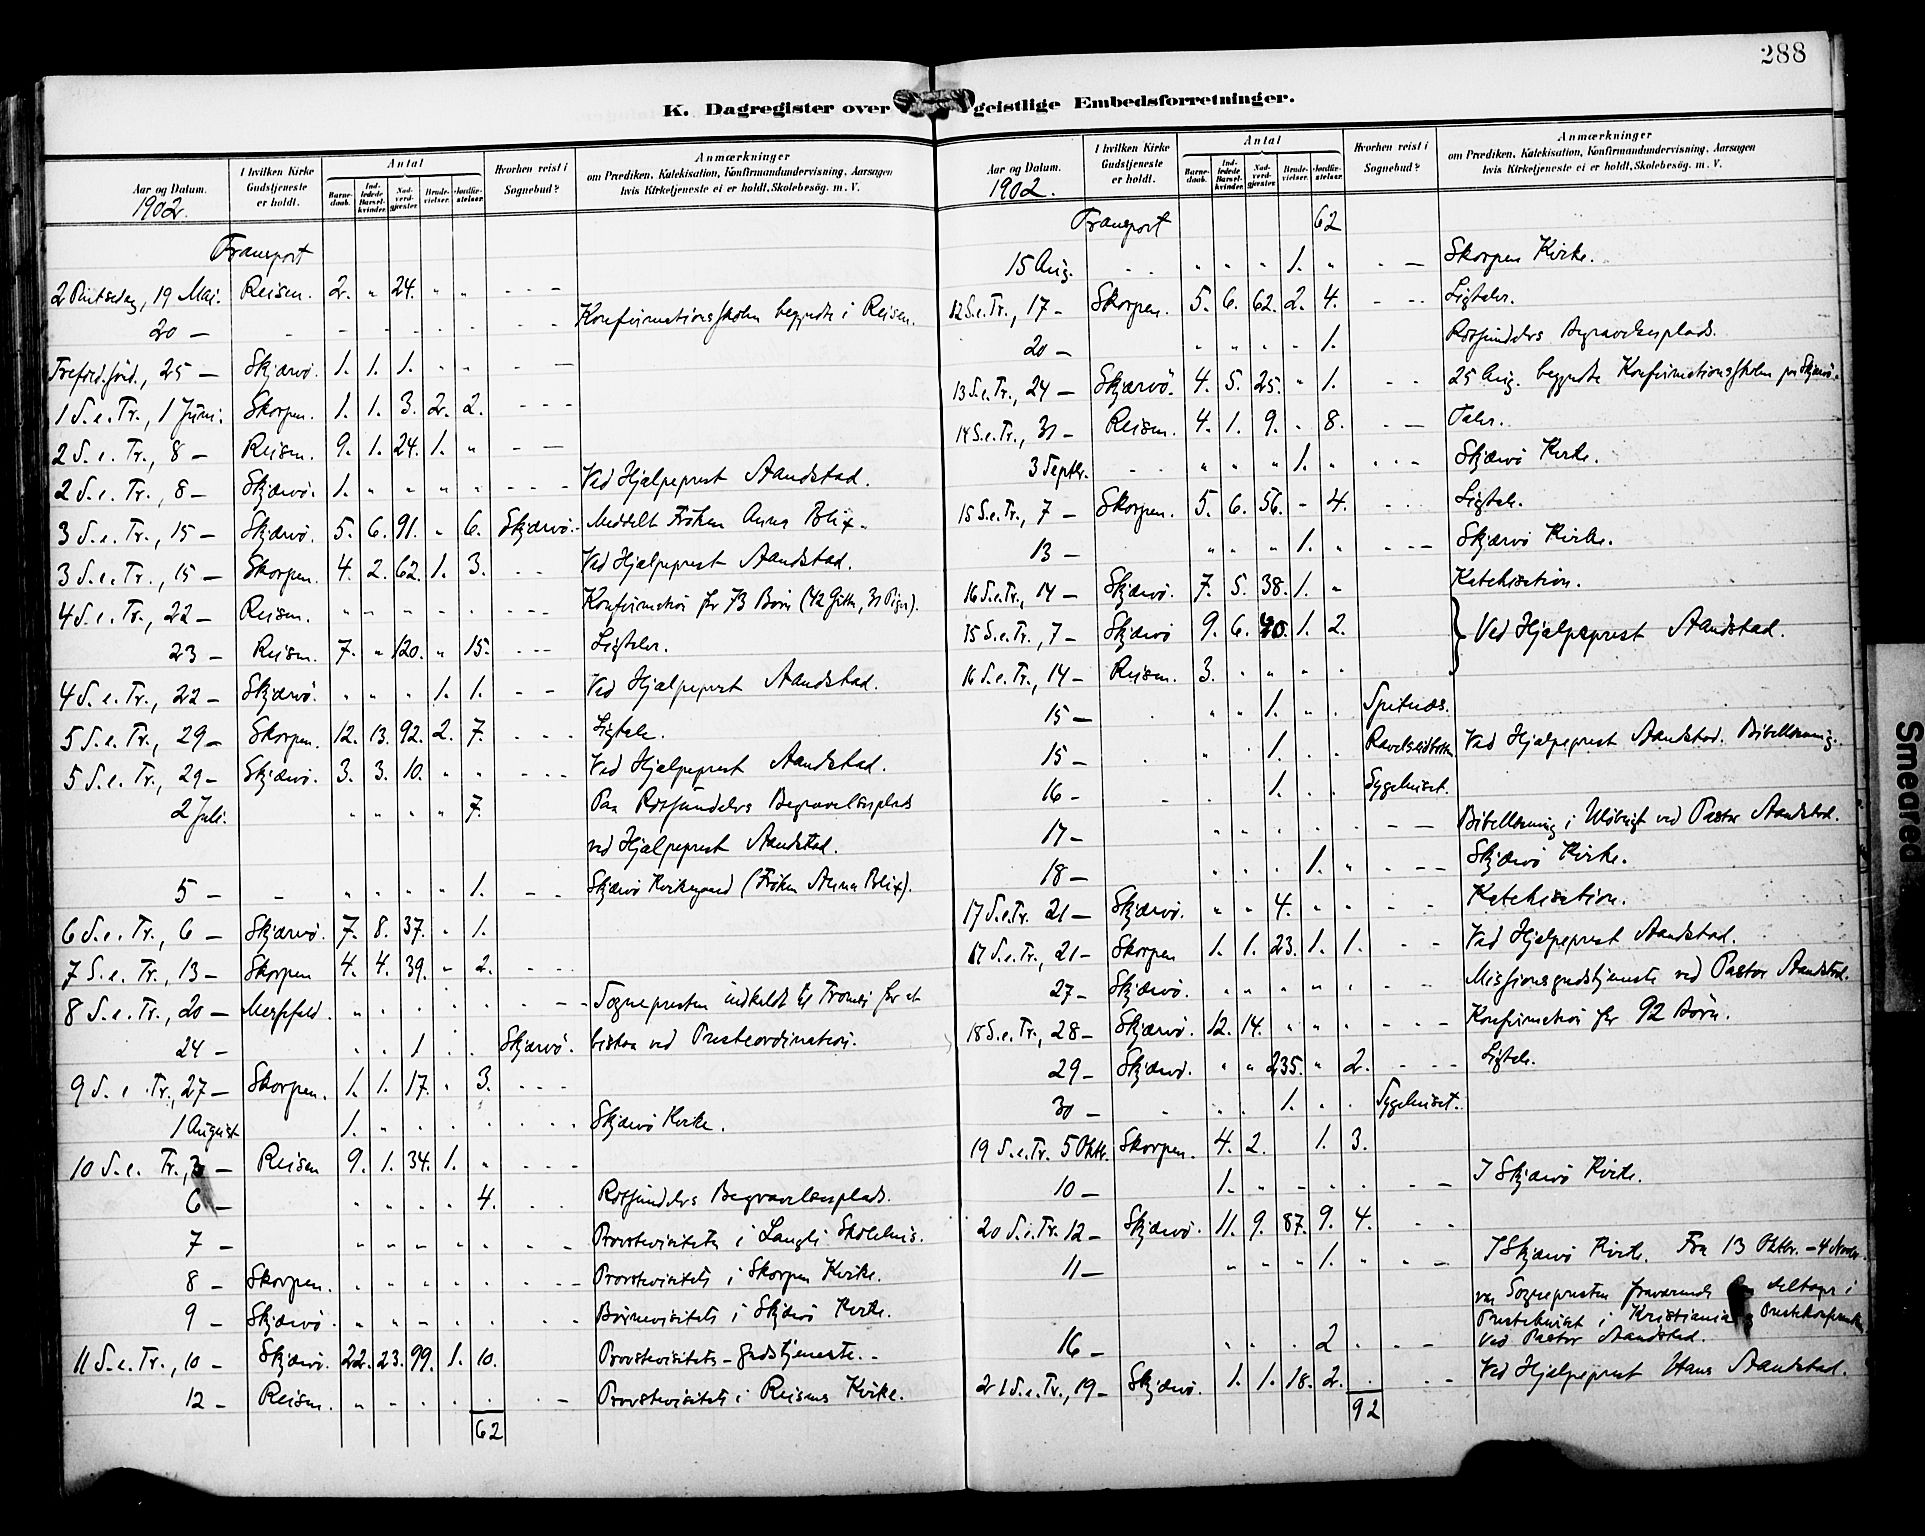 288
K. Dagregister over geistlige Embedsforretninger.
Aar og Datum. 1902. I hvilken Kirke Gudstjeneste er holdt. Antal Barnedaab. Indledede Barselkvinder. Nadverdgjester. Brudevielser. Jordfæstelser. Hvorhen reist i Sognebud? Anmærkninger om Prædiken, Katekisation, Konfirmandundervisning, Aarsagen hvis Kirketjeneste ei er holdt, Skolebesög. m. V.
Transport
2 Pintsedag, 19 Mai. Reisen. 2. " 24. " " - - -
20 — - - - - - - Konfirmationsskolen begyndte i Reisen.
Trefold. , 25 — Skjærvö. 1. 1. 1. " " - —
1 S. e. Tr., 1 Juni. Skorpen. 1. 1. 3. 2. 2. - - -
2 S. e. Tr., 8 — Reisen. 9. 1. 24. 1. " - —
2 S. e. Tr., 8 — Skjærvö. 1. " " " " - - - Ved Hjælpeprest Aandstad.
3 S. e. Tr., 15 — Skjærvö. 5. 6. 91. " 6. Skjærvö. Meddelt Fröken Anna Blix.
3 S. e. Tr., 15 — Skorpen. 4. 2. 62. 1. 3. - - Ved Hjælpeprest Aandstad.
4 S. e. Tr., 22 — Reisen. " " " " " - - - Konfirmation for 73 Börn (42 Gutter, 31 Piger).
23 — Reisen. 7. " 120. " 15. - - - Ligtaler.
4 S. e. Tr., 22 — Skjærvö. " " " 1. 1. - - Ved Hjælpeprest Aandstad.
5 S. e. Tr., 29 — Skorpen. 12. 13. 92. 2. 7. - - - Ligtale.
5 S. e. Tr., 29 — Skjærvö. 3. 3. 10. " " - - - Ved Hjælpeprest Aandstad.
2 Juli. " " " " 7. Paa Rotsundelvs Begravelsesplads
ved Hjælpeprest Aandstad.
5 — - " " " " 1. - - Skjærvö Kirkegaard (Fröken Anna Blix).
6 S. e. Tr., 6 — Skjærvö. 7. 8. 37. " 1.
7 S. e. Tr., 13 — Skorpen 4. 4. 39. " 2. - - -
8 S. e. Tr., 20 — Messefald. " " " " " - - Sognepresten indkaldt til Tromsö for at
24 — " " 1 " " Skjærvö. bistaa ved Presteordination.
9 S. e. Tr., 27 — Skorpen. 1. 1. 17. " 3. - - -
1 August 1. " " " " - - - Skjærvö Kirke.
10 S. e. Tr., 3 — Reisen 9. 1. 34. 1. " - - -
6 — " " " " 4. - - Rotsundelvs Begravelsesplads.
7 — " " " " " - - Provstevisitats i Langli Skolehus.
8 — Skorpen. " " " " " - - - Provstevisitats i Skorpen Kirke.
9 — Skjærvö. " " " " " - - Börnevisitats i Skjærvö Kirke.
11 S. e. Tr., 10 — Skjærvö. 22. 23. 99. 1. 10. Provstevisitats-gudstjeneste.
12 — Reisen. " " " " " - - Provstevisitats i Reisens Kirke.
62
Aar og Datum. 1902. I hvilken Kirke Gudstjeneste er holdt. Antal Barnedaab. Indledede Barselkvinder. Nadverdgjester. Brudevielser. Jordfæstelser. Hvorhen reist i Sognebud? Anmærkninger om Prædiken, Katekisation, Konfirmandundervisning, Aarsagen hvis Kirketjeneste ei er holdt, Skolebesög. m. V.
Transport 62
15 Aug. - - " " " 1. " - — Skorpen Kirke.
12 S. e. Tr., 17 — Skorpen. 5. 6. 62. 2. 4. - - - Ligtaler.
20 — " " " " 1. Rotsundelvs Begravelsesplads.
13 S. e. Tr., 24 — Skjærvö. 4. 5. 25. " 1. - - 25 Aug. begyndte Konfirmationsskolen paa Skjærvö.
14 S. e. Tr., 31 — Reisen. 4. 1. 9. " 8. - — Taler.
3 Septbr. - - " " " 1. " - - - Skjærvö Kirke.
15 S. e. Tr., 7 — Skorpen. 5. 6. 56. - 4. - - - Ligtale.
13 — " " " 1. " - - - Skjærvö Kirke.
16 S. e. Tr., 14 — Skjærvö. 7. 5. 38. 1. " Katekisation.
15 S. e. Tr., 7 — Skjærvö 9. 6. 40. 1. 2. } Ved Hjælpeprest Aandstad.
16 S. e. Tr., 14 — Reisen. 3. " " " "
15 — " " 1. " " Spitnæs.
15 — " 1. " " Ved Hjælpeprest Aandstad. Bibellæsning.
16 — 1. " " Sygehuset.
17 — " " " " " - — Bibellæsning i ved Pastor Aandstad.
18 — " " " 1. " - — Skjærvö Kirke.
17 S. e. Tr. 21 — Skjærvö. " " 4. " " - - Katekisation.
17 S. e. Tr., 21 — Skorpen 1. 1. 23. 1. 1. - - Ved Hjelpeprest Aandstad.
27 — Skjærvö. " " " " " - - Missionsgudstjeneste ved Pastor Aandstad.
18 S. e. Tr., 28 — Skjærvö. 12. 14. " " " - - - Konfirmation for 92 Börn.
29 — Skjærvö. " " 235. " 2. - - - Ligtale.
30 — " " 1. " " Sygehuset.
19 S. e. Tr. 5 Oktbr. Skorpen. 4. 2. 1. 3.
10 — 1. " " " " - - I Skjærvö Kirke.
20 S. e. Tr. 12 — Skjærvö. 11. 9. 87. 9. 4. - -
11 — " " " 1. " - - I Skjærvö Kirke. Fra 13 Oktbr. - 4 Novbr.
var Sognepresten fraværende deltager i
Prestekurset i Kristiania Prestekonferentsen
16 — " " " 2 " - - Ved Pastor Aandstad.
21 S. e. Tr., 19 — Skjærvö. 1. 1. 18. 2. " - - Ved Hjælpeprest Hans Aandstad.
92
Smeared